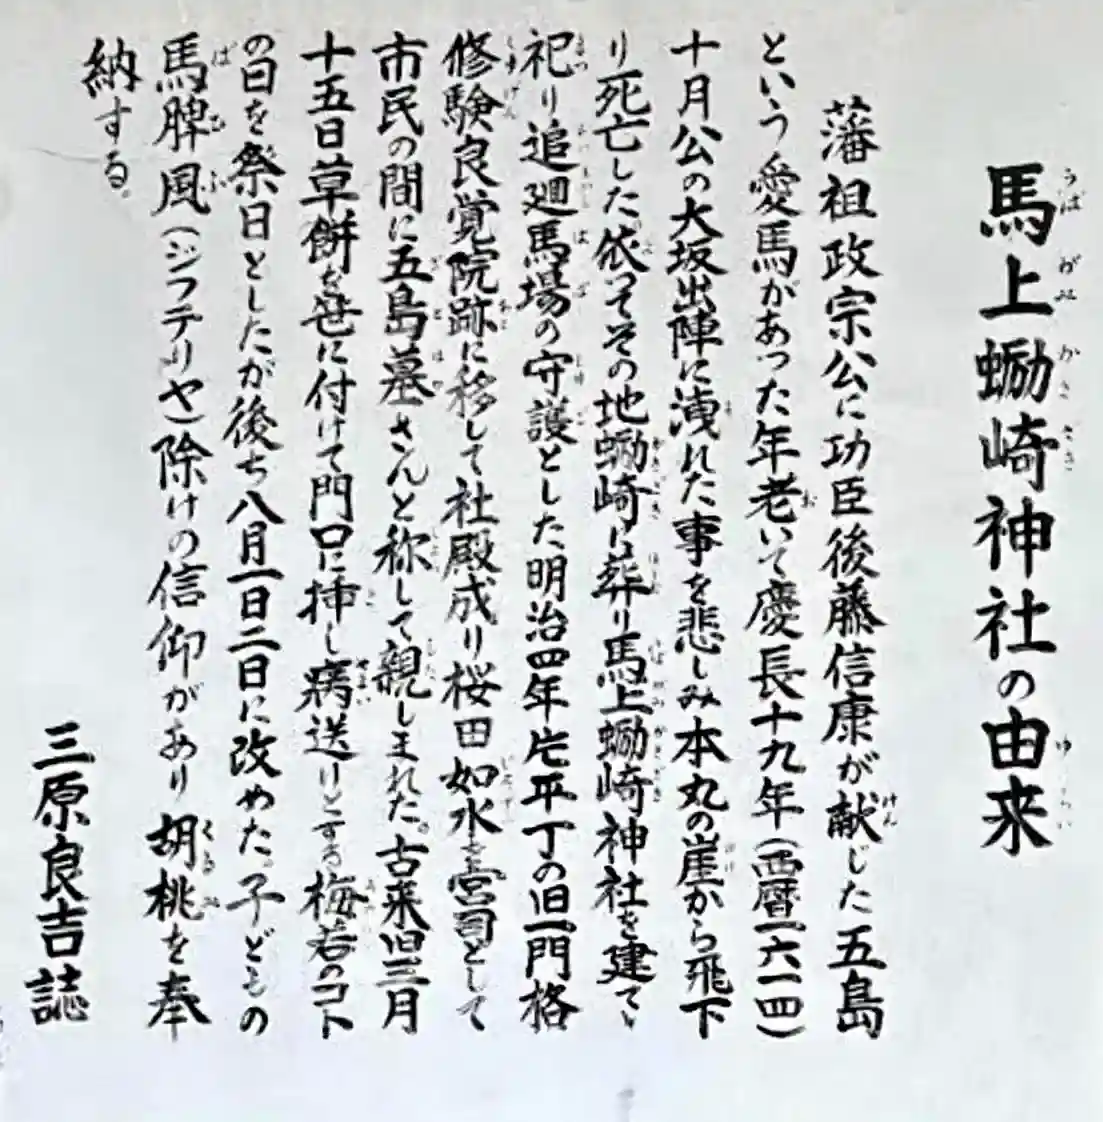 馬上蛎崎神社の由来
藩祖政宗公に功臣後藤信康が献じた五島
という愛馬があった年老いて慶長十九年(西暦一六一四)
十月公の大坂出陣に洩れた事を悲しみ本丸の崖から飛下
り死亡した。依ってその地蛎崎に葬り馬上蛎崎神社を建て
祀り追廻馬場の守護とした明治四年片平丁の旧一門格
修験良覚院跡に移して社殿成り桜田如水を宮司として
市民の間に五島墓さんと称して親しまれた。古来旧三月
十五日草餅を笹に付けて門口に挿し病送りとする梅若のコト
の日を祭日としたが後ち八月一日二日に改めた。子どもの
馬脾風(ジフテリヤ)除けの信仰があり胡桃を奉
納する。
三原良吉誌